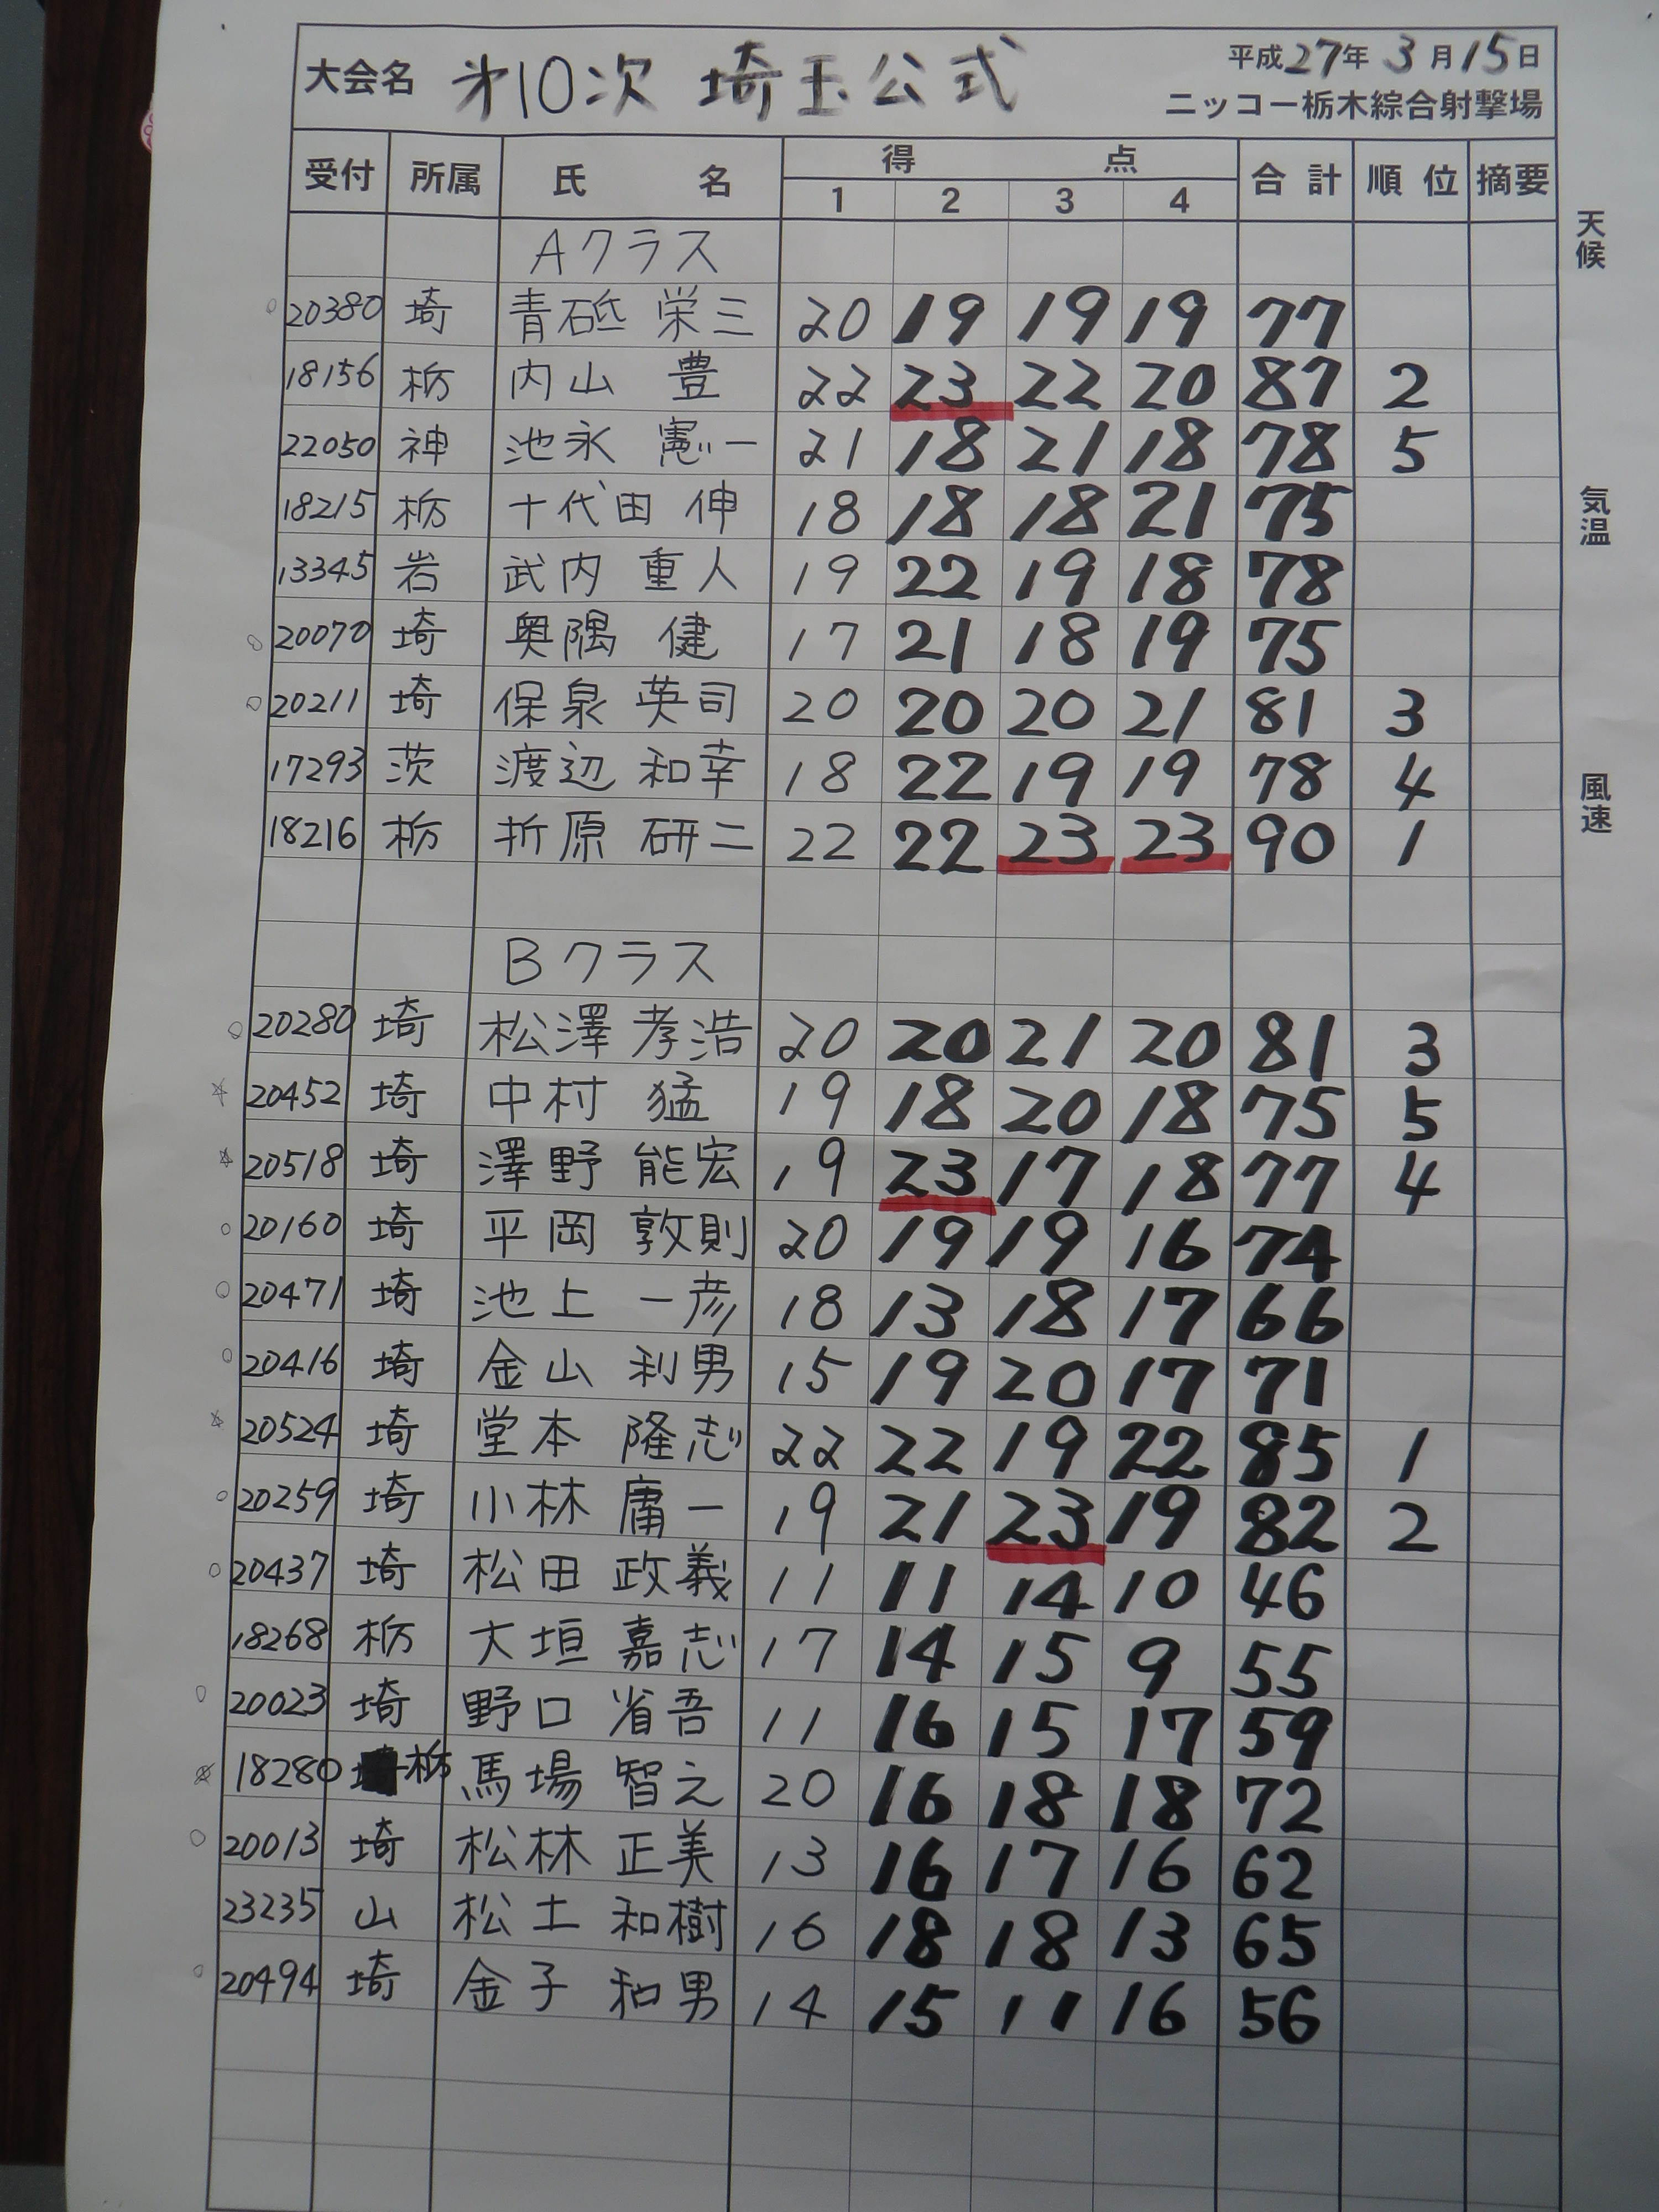 大会名 第10次 埼玉公式 平成27年3月15日
ニッコー栃木綜合射撃場
受付 所属 氏名 得点 合計 順位 摘要
1 2 3 4
天候
Aクラス
20380 埼 青砥 栄三 20 19 19 19 77
18156 栃 内山 豊 22 23 22 20 87 2
22050 神 池永 憲一 21 18 21 18 78 5
気温
18215 栃 十代田 伸 18 18 18 21 75
13345 岩 武内 重人 19 22 19 18 78
20070 埼 奥隅 健 17 21 18 19 75
20211 埼 保泉 英司 20 20 20 21 81 3
17293 茨 渡辺 和幸 18 22 19 19 78 4
風速
18216 栃 折原 研二 22 22 23 23 90 1
Bクラス
20280 埼 松澤 孝浩 20 20 21 20 81 3
20452 埼 中村 猛 19 18 20 18 75 5
20518 埼 澤野 能宏 19 23 17 18 77 4
20160 埼 平岡 敦則 20 19 19 16 74
20471 埼 池上 一彦 18 13 18 17 66
20416 埼 金山 利男 15 19 20 17 71
20524 埼 堂本 隆志 22 22 19 22 85 1
20259 埼 小林 庸一 19 21 23 19 82 2
20437 埼 松田 政義 11 11 14 10 46
18268 栃 大垣 嘉志 17 14 15 9 55
20023 埼 野口 省吾 11 16 15 17 59
18280 栃 馬場 智之 20 16 18 18 72
20013 埼 松林 正美 13 16 17 16 62
23235 山 松土 和樹 16 18 18 13 65
20494 埼 金子 和男 14 15 11 16 56